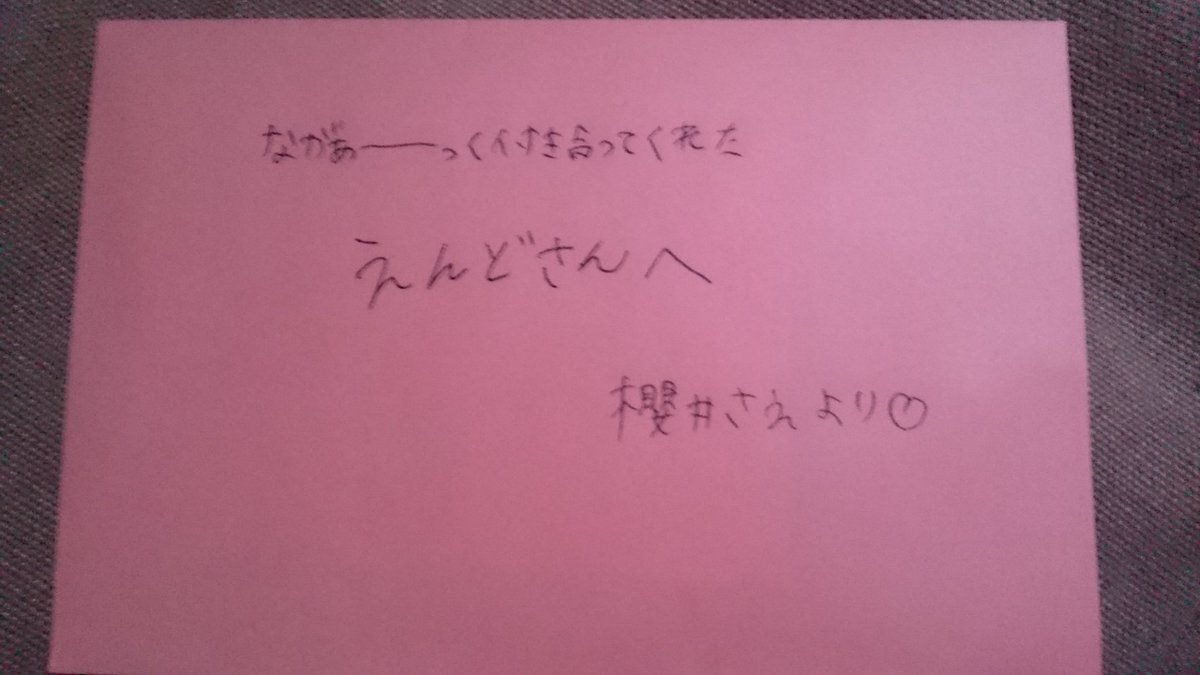 ながぁーーっく付き合ってくれた
えんどさんへ
櫻井さえより♡